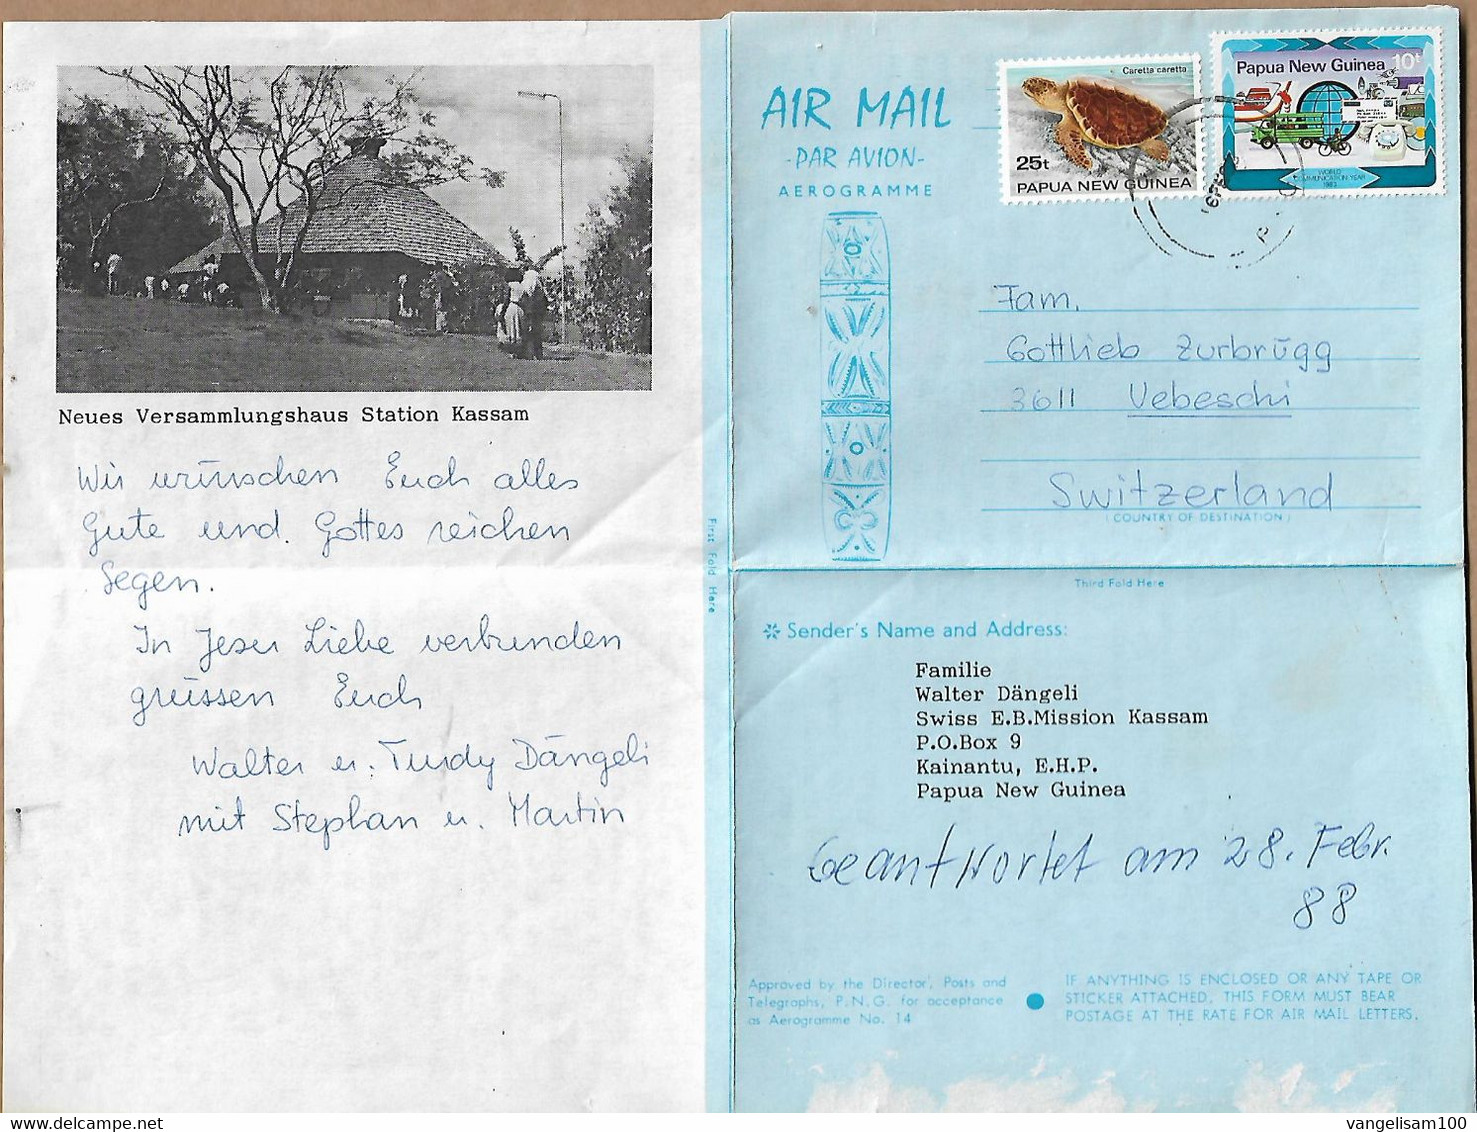 Neues Versammlungshaus Station Kassam
Wir wünschen Euch alles
Gute und Gottes reichen
Segen.
In Jesu Liebe verbunden
grüssen Euch
Walter u. Trudy Dängeli
mit Stephan u. Martin
First Fold Here
AIR MAIL
-PAR AVION-
AEROGRAMME
Caretta caretta
25t
PAPUA NEW GUINEA
Papua New Guinea 10t
WORLD
COMMUNICATION YEAR
1983
Fam.
Gottlieb Zurbrügg
3611 Uebeschi
Switzerland
(COUNTRY OF DESTINATION)
Third Fold Here
Sender's Name and Address:
Familie
Walter Dängeli
Swiss E.B.Mission Kassam
P.O.Box 9
Kainantu, E.H.P.
Papua New Guinea
Geantwortet am 28. Febr.
88
Approved by the Director, Posts and
Telegraphs, P.N.G. for acceptance
as Aerogramme No. 14
IF ANYTHING IS ENCLOSED OR ANY TAPE OR
STICKER ATTACHED, THIS FORM MUST BEAR
POSTAGE AT THE RATE FOR AIR MAIL LETTERS.
vangelisam100